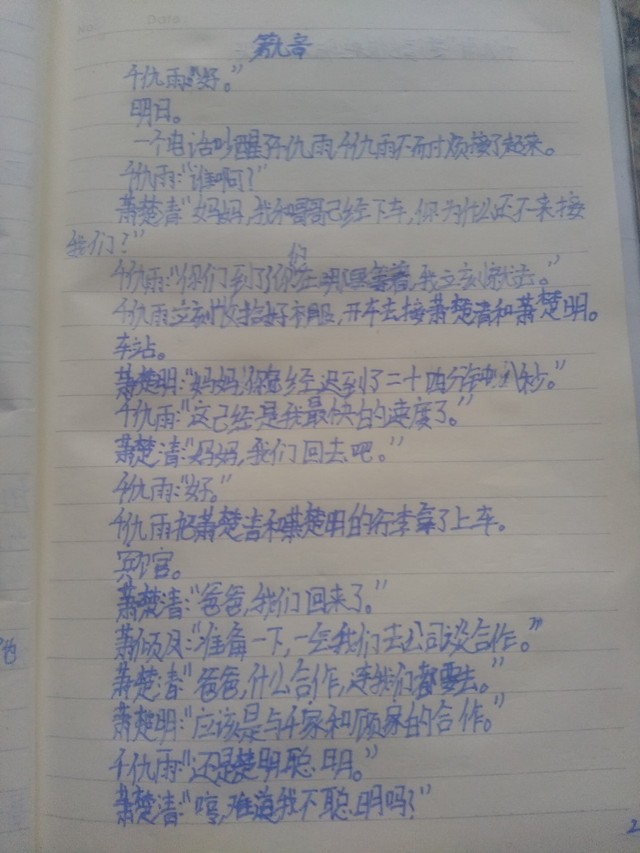 第九章
千仇雨:“好。”
明日。
一个电话吵醒千仇雨,千仇雨不耐烦接了起来。
千仇雨:“谁啊?”
萧楚清“妈妈,我和哥哥已经下车,你为什么还不来接
我们?”
千仇雨:“你们到了,你们在那里等着,我立刻就去。”
千仇雨立刻收拾好衣服,开车去接萧楚清和萧楚明。
车站。
萧楚明:“妈妈,你已经迟到了二十四分钟八秒。”
千仇雨:“这已经是我最快的速度了。”
萧楚清:“妈妈,我们回去吧。”
千仇雨:“好。”
千仇雨把萧楚清和萧楚明的行李拿了上车。
宾馆。
萧楚清:“爸爸,我们回来了。”
萧倾:“准备一下,一会我们去公司谈合作。”
萧楚清“爸爸,什么合作,连我们都要去。”
萧楚明:“应该是与千家和顾家的合作。”
千仇雨:“还是楚明聪明。”
萧楚清:“哼,难道我不聪明吗?”
2